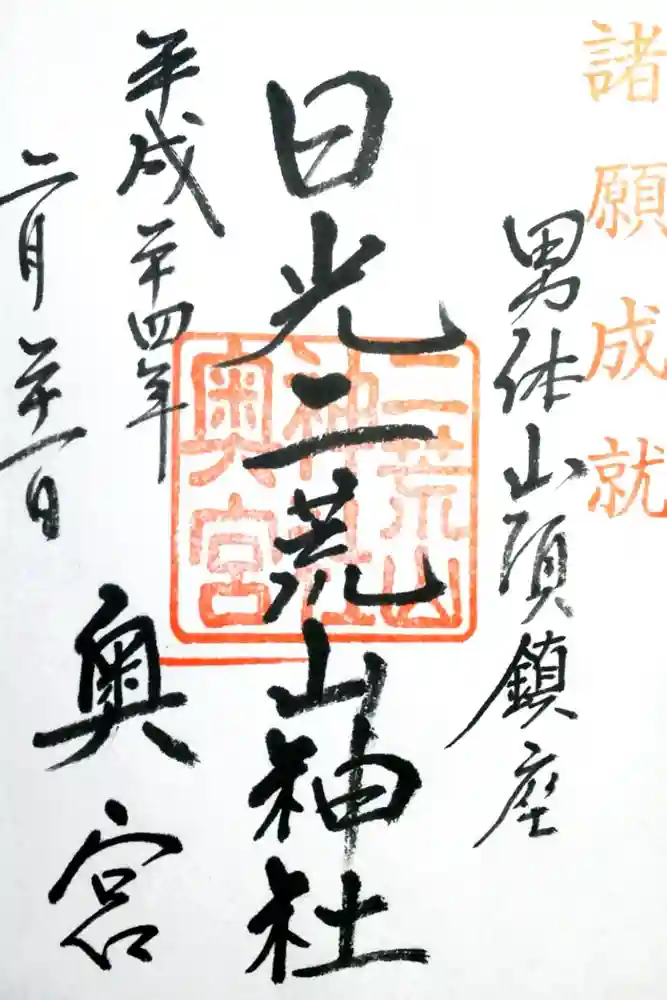 諸願成就
男体山頂鎮座
日光二荒山神社
二荒山
神社
奥宮
奥宮
平成二十四年
二月二十一日